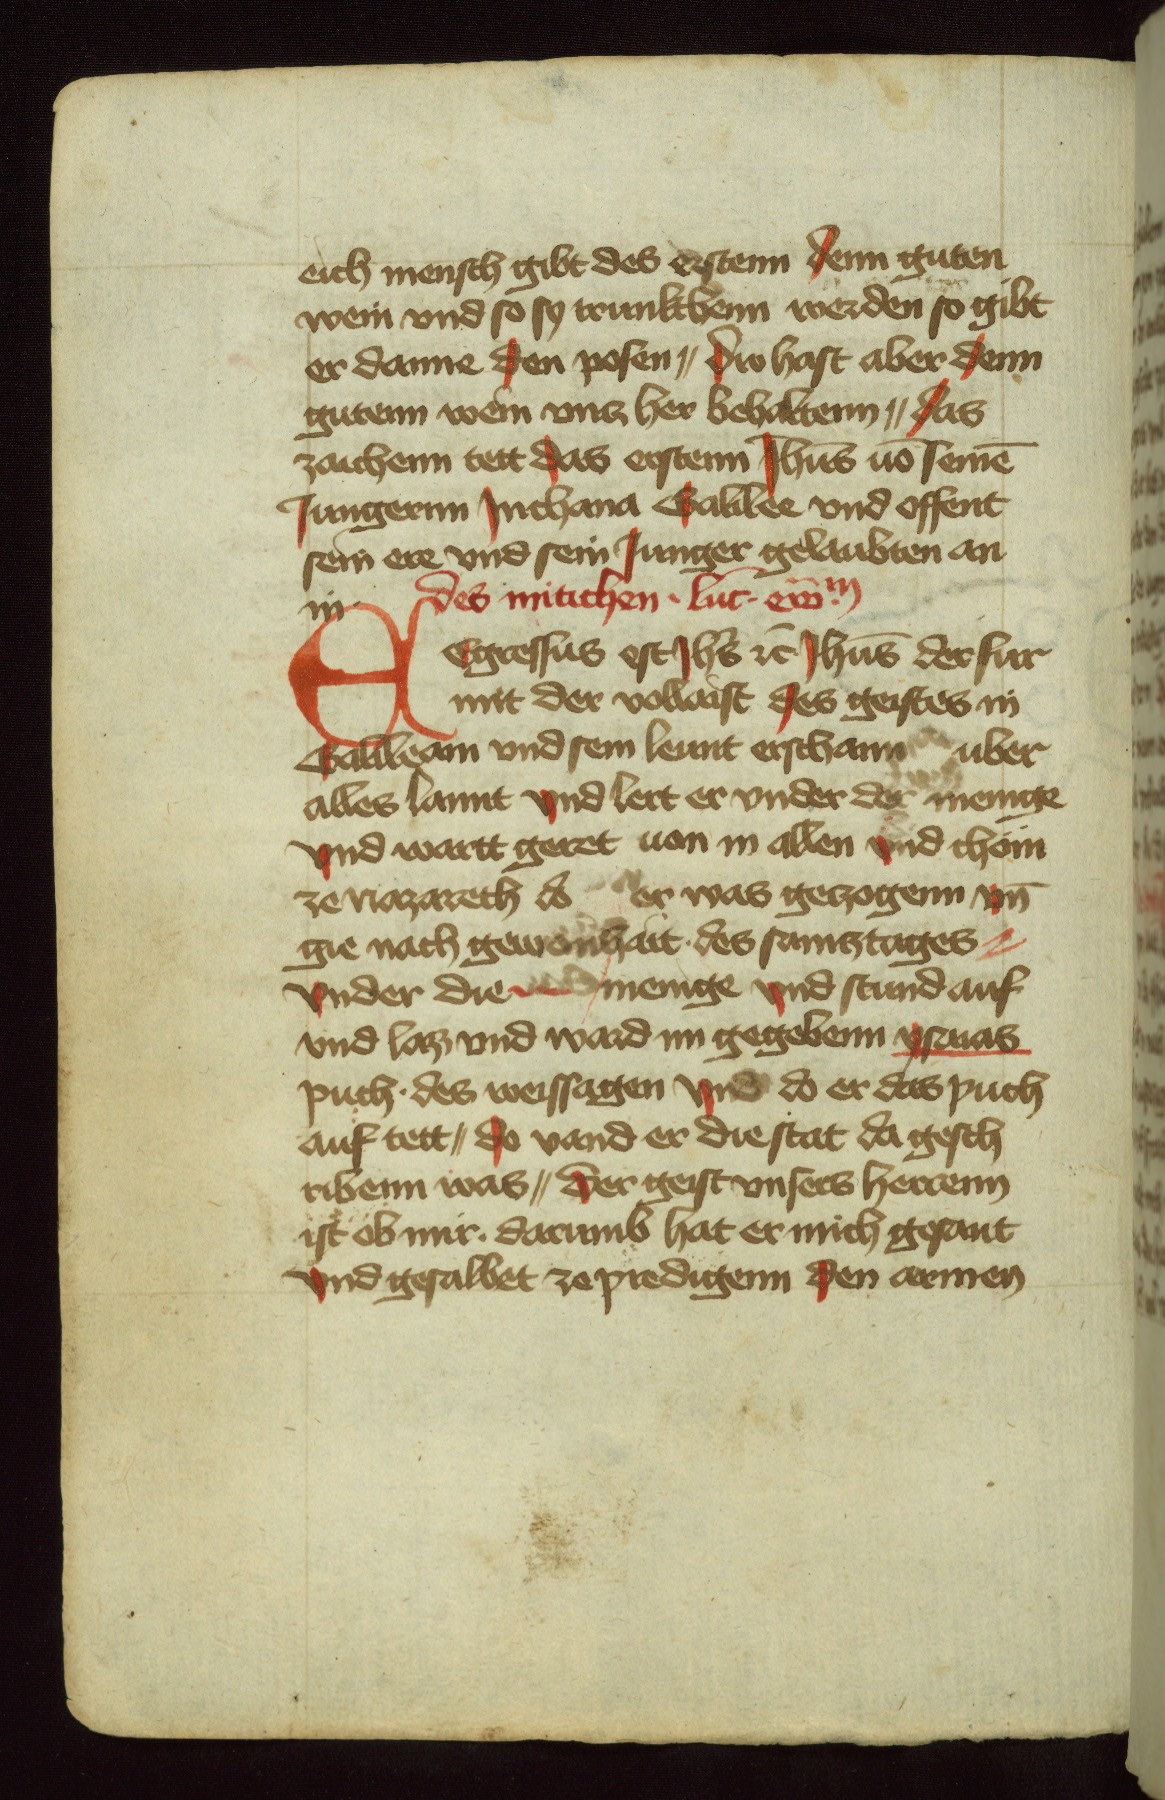 eich mensch gibt des erstenn denn guten
wein vnd so sy trunkchenn werden so gibt
er danne den posen // dw hast aber denn
gutenn wein vntz her behaltenn // das
zaichenn tett das erstenn Jhūs uō seinē
Jungernn Jn chana Galilee vnd offent
sein ere vnd sein Junger gelaubten an
in
des mitichen · luc̄ · ew̄m
Egressus est Jhs̄ rc̄ Jhūs der fur
mit der vollaist des geistes in
Galileam vnd sein leunt erschann uber
alles lannt vnd lert er vnder der menige
vnd wartt geret uon in allen vnd chom
ze Nazareth do er was getzogenn vn̄
gie nach gewonhait · des samtztages
vnder die menige vnd stund auf
vnd laz vnd ward im gegebenn ysaias
puch · des weissagen vnd do er das puch
auf tett // do vand er die stat da gesch
ribenn was // der geist vnsers herrenn
ist ob mir · darumb hat er mich gesant
vnd gesalbet ze predigenn den armen